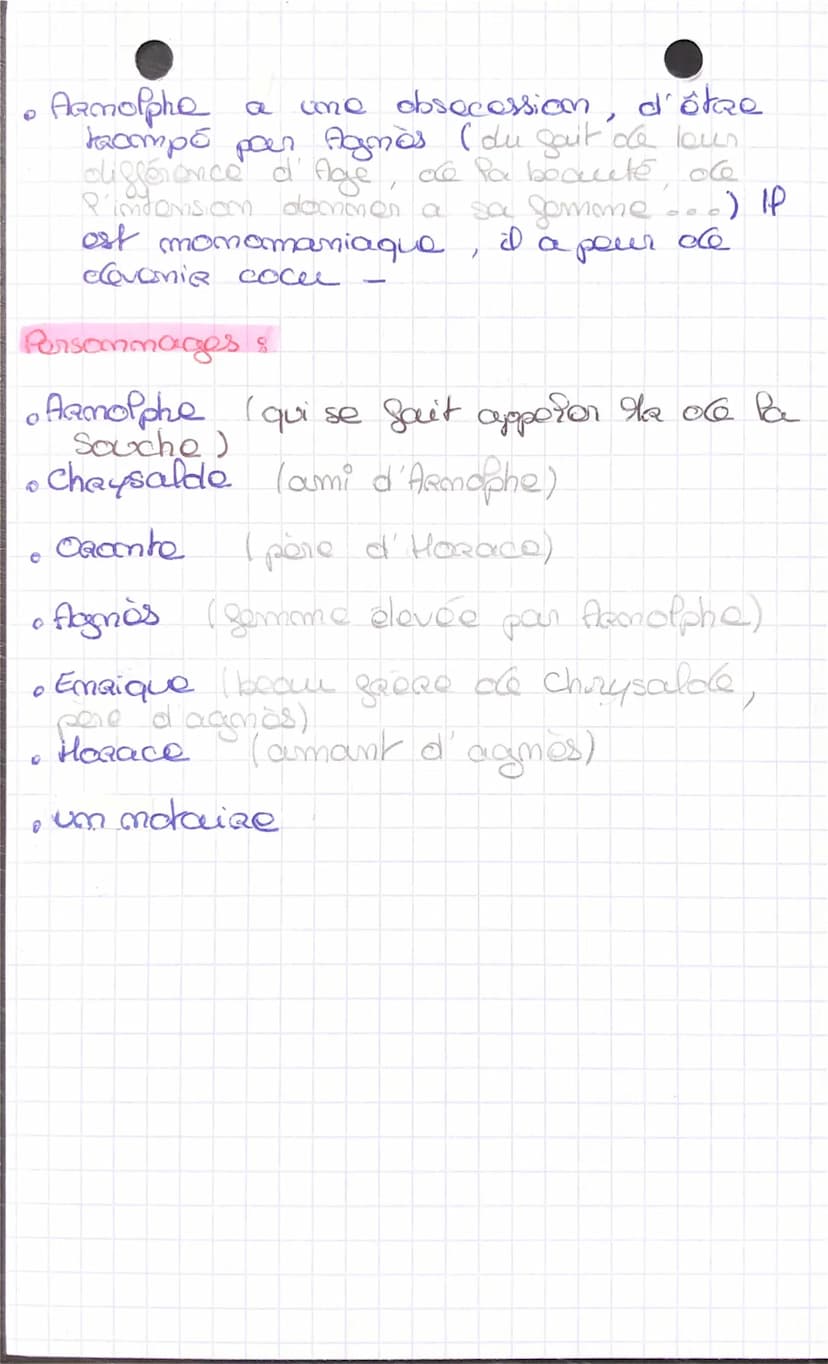 • Arnolphe a une obsecession, d'être
trompé par Agnès (du fait de leur
différence d'Age, de la beauté, de
l'intension donner a sa femme ...) Il
est monomaniaque, il a peur de
devenir cocu -
Personnages :
• Arnolphe (qui se fait appeler Mr de la
Souche)
• Chrysalde (ami d'Arnolphe)
• Oronte (père d'Horace)
• Agnès (femme élevée par Arnolphe)
• Enrique (beau frère de Chrysalde,
père d'agnès)
• Horace (amant d'agnès)
• un notaire